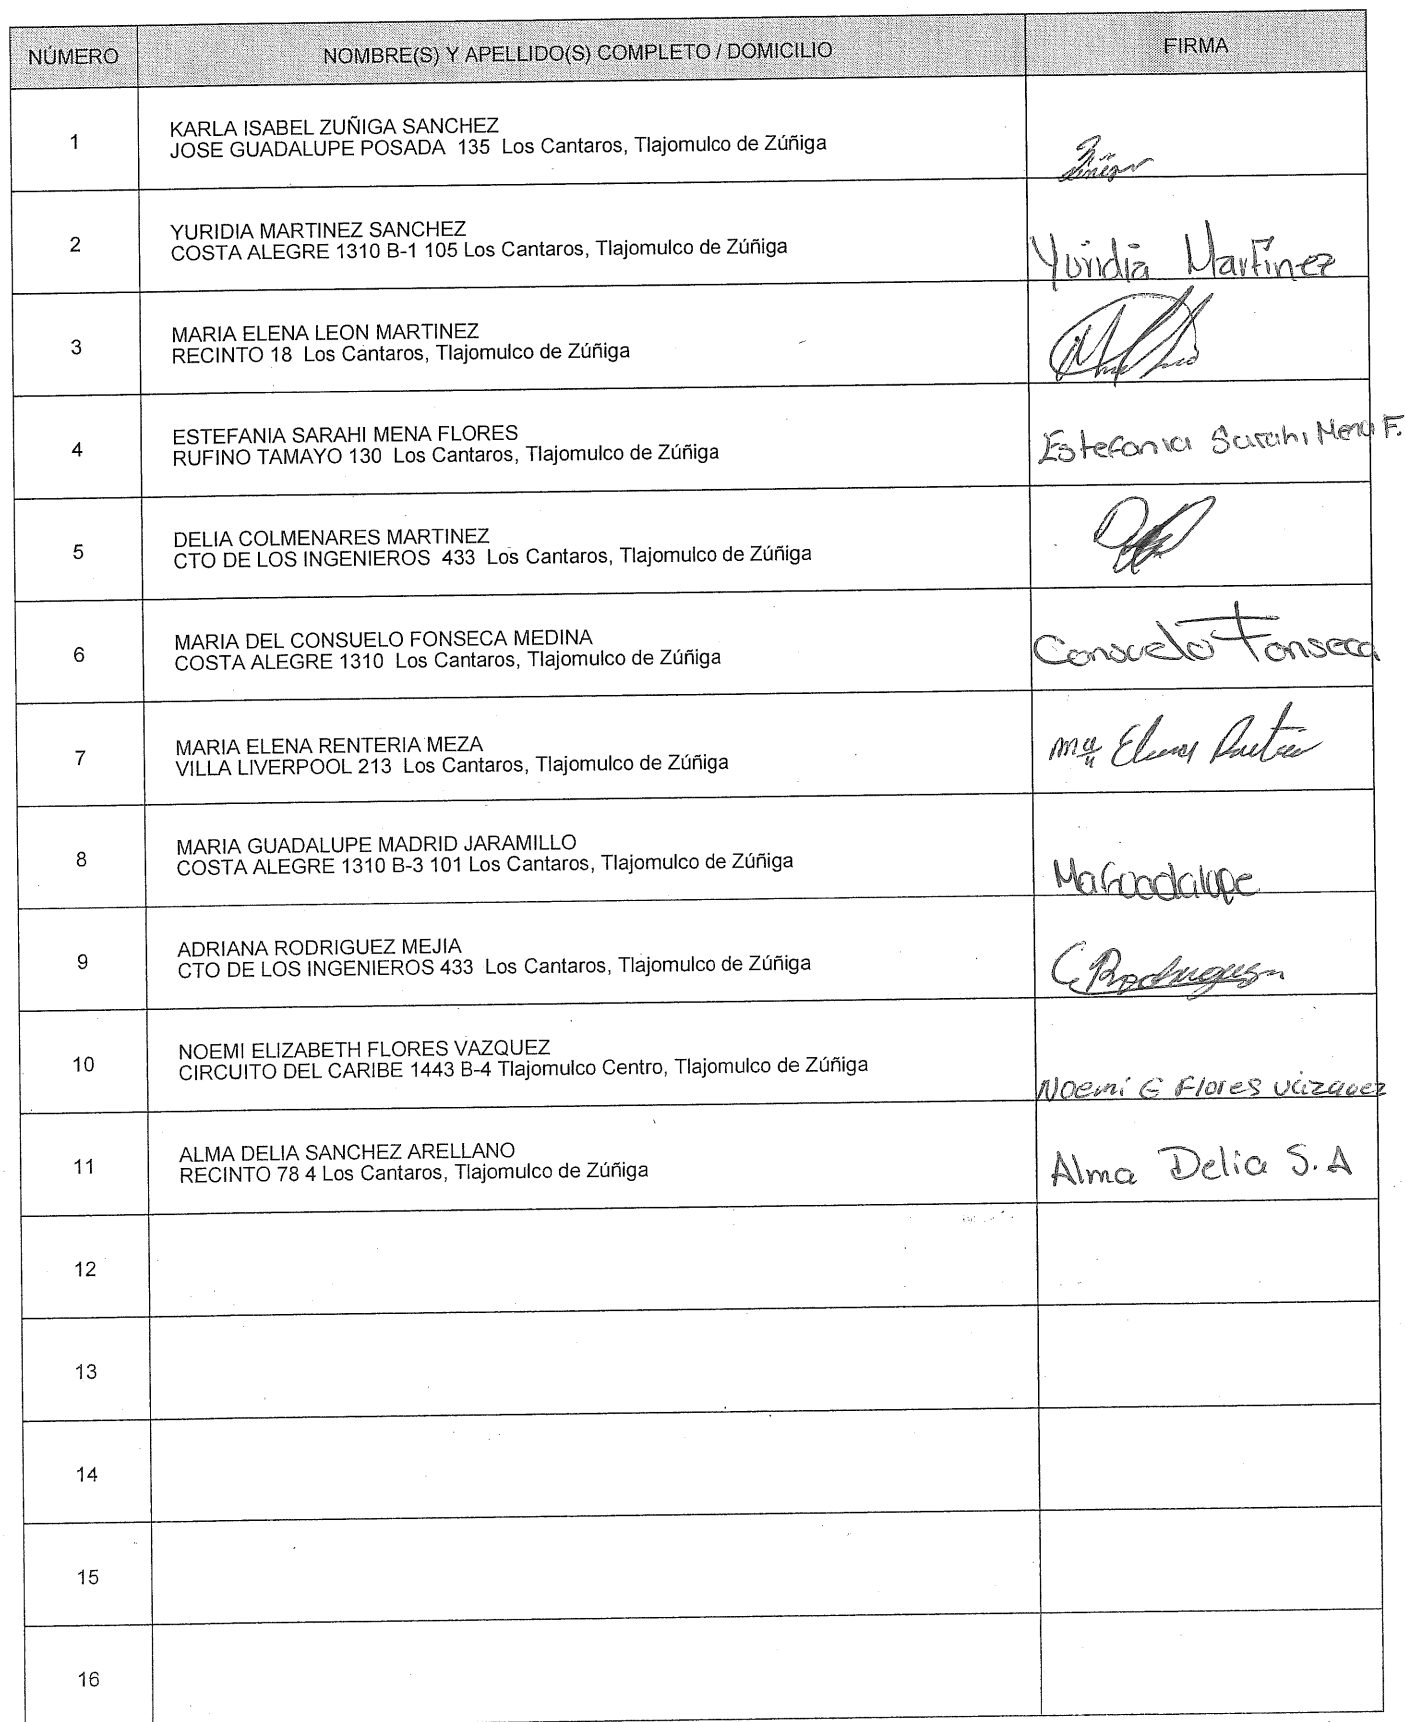 NÚMERO NOMBRE(S) Y APELLIDO(S) COMPLETO / DOMICILIO FIRMA
1 KARLA ISABEL ZUÑIGA SANCHEZ
JOSE GUADALUPE POSADA 135 Los Cantaros, Tlajomulco de Zúñiga
2 YURIDIA MARTINEZ SANCHEZ
COSTA ALEGRE 1310 B-1 105 Los Cantaros, Tlajomulco de Zúñiga
Yuridia Martinez
3 MARIA ELENA LEON MARTINEZ
RECINTO 18 Los Cantaros, Tlajomulco de Zúñiga
4 ESTEFANIA SARAHI MENA FLORES
RUFINO TAMAYO 130 Los Cantaros, Tlajomulco de Zúñiga
Estefania Sarahi Mena F.
5 DELIA COLMENARES MARTINEZ
CTO DE LOS INGENIEROS 433 Los Cantaros, Tlajomulco de Zúñiga
6 MARIA DEL CONSUELO FONSECA MEDINA
COSTA ALEGRE 1310 Los Cantaros, Tlajomulco de Zúñiga
Consuelo Fonseca
7 MARIA ELENA RENTERIA MEZA
VILLA LIVERPOOL 213 Los Cantaros, Tlajomulco de Zúñiga
Ma Elena
8 MARIA GUADALUPE MADRID JARAMILLO
COSTA ALEGRE 1310 B-3 101 Los Cantaros, Tlajomulco de Zúñiga
Ma Guadalupe
9 ADRIANA RODRIGUEZ MEJIA
CTO DE LOS INGENIEROS 433 Los Cantaros, Tlajomulco de Zúñiga
Rodriguez
10 NOEMI ELIZABETH FLORES VAZQUEZ
CIRCUITO DEL CARIBE 1443 B-4 Tlajomulco Centro, Tlajomulco de Zúñiga
Noemi E Flores vázquez
11 ALMA DELIA SANCHEZ ARELLANO
RECINTO 78 4 Los Cantaros, Tlajomulco de Zúñiga
Alma Delia S. A
12
13
14
15
16